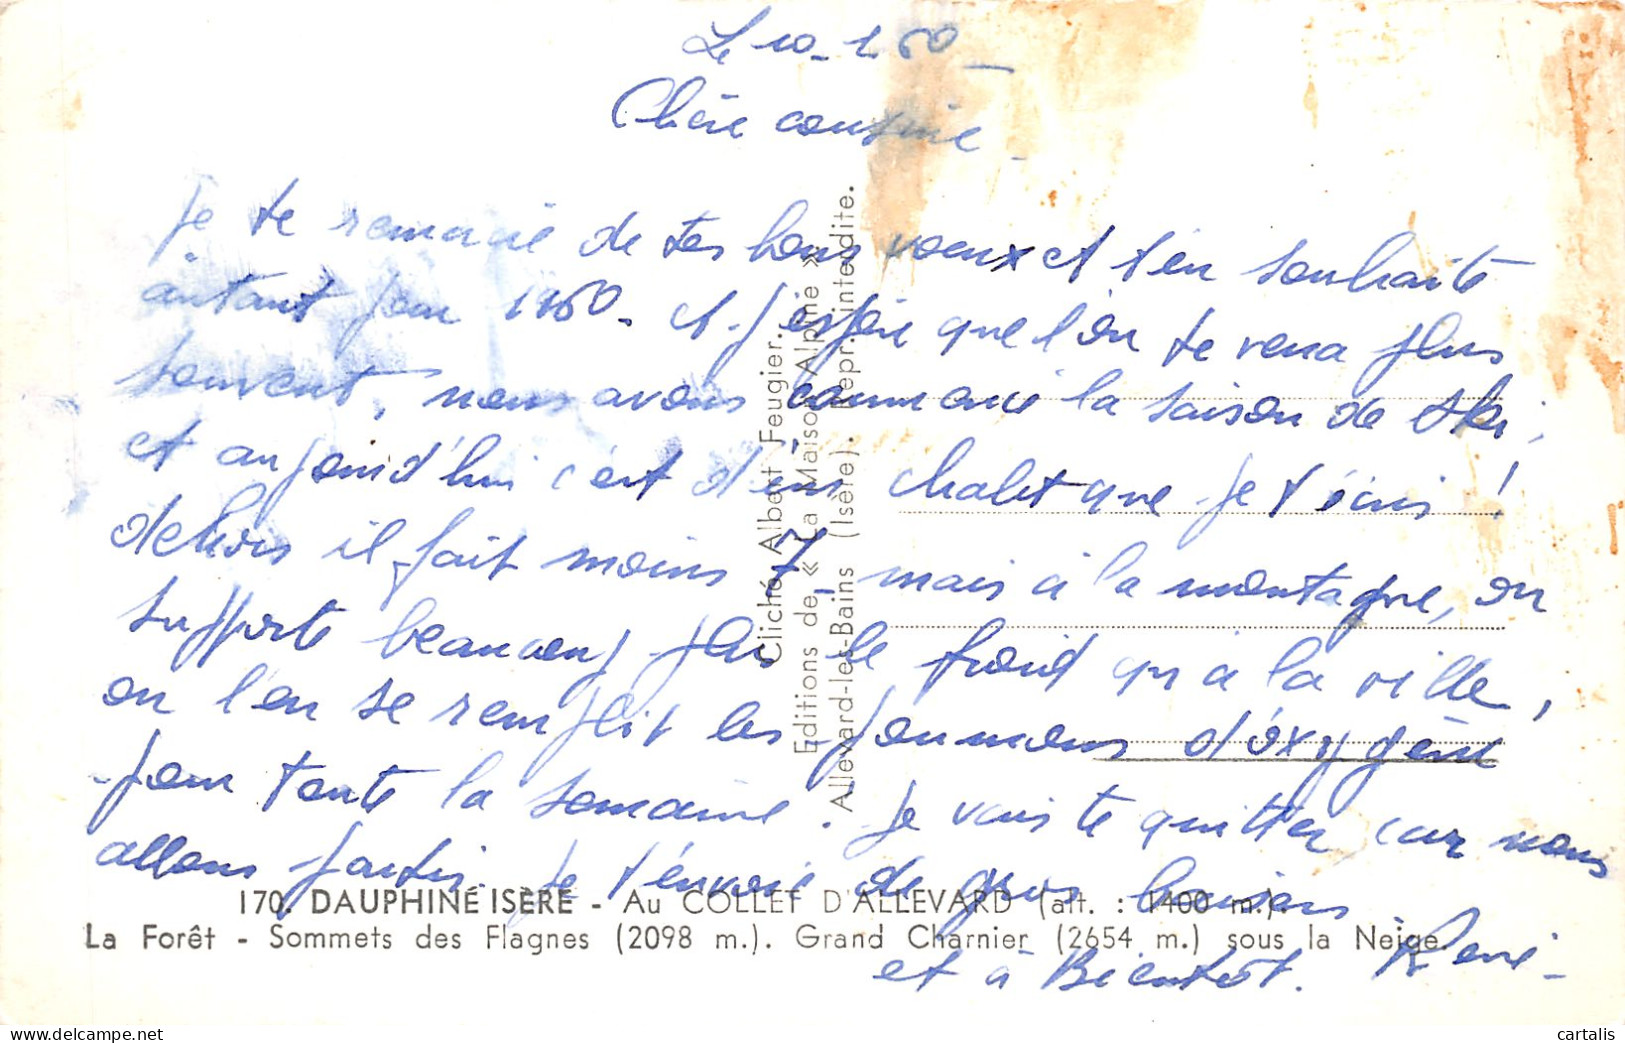 Le 10-1 60
Chère cousine
Je te remercie de tes bons voeux et t'en souhaite
autant pour 1960. et j'espère que l'on te verra plus
souvent, nous avons commencé la saison de ski,
et aujourd'hui c'est d'un chalet que je t'écris !
dehors il fait moins 7, mais à la montagne, on
supporte beaucoup plus le froid qu'à la ville,
on l'on se remplit les poumons d'oxygène
pour toute la semaine. Je vais te quitter car nous
allons partir. Je t'envoie de gros baisers
et à Bientôt. René
Cliché Albert Feugier.
Editions de « La Maison Alpine »
Allevard-les-Bains (Isère). Repr. interdite.
170. DAUPHINÉ ISÈRE - Au COLLET D'ALLEVARD (alt. : 1400 m.).
La Forêt - Sommets des Flagnes (2098 m.). Grand Charnier (2654 m.) sous la Neige.
cartalis